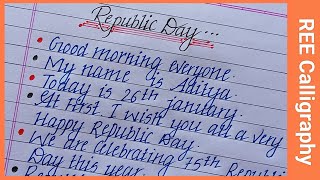 Republic Day ...
Good morning everyone.
My name is Aditya.
Today is 26th january.
At first, I wish you all a very
Happy Republic Day.
We are celebrating 75th Republic
Day this year.
REE Calligraphy